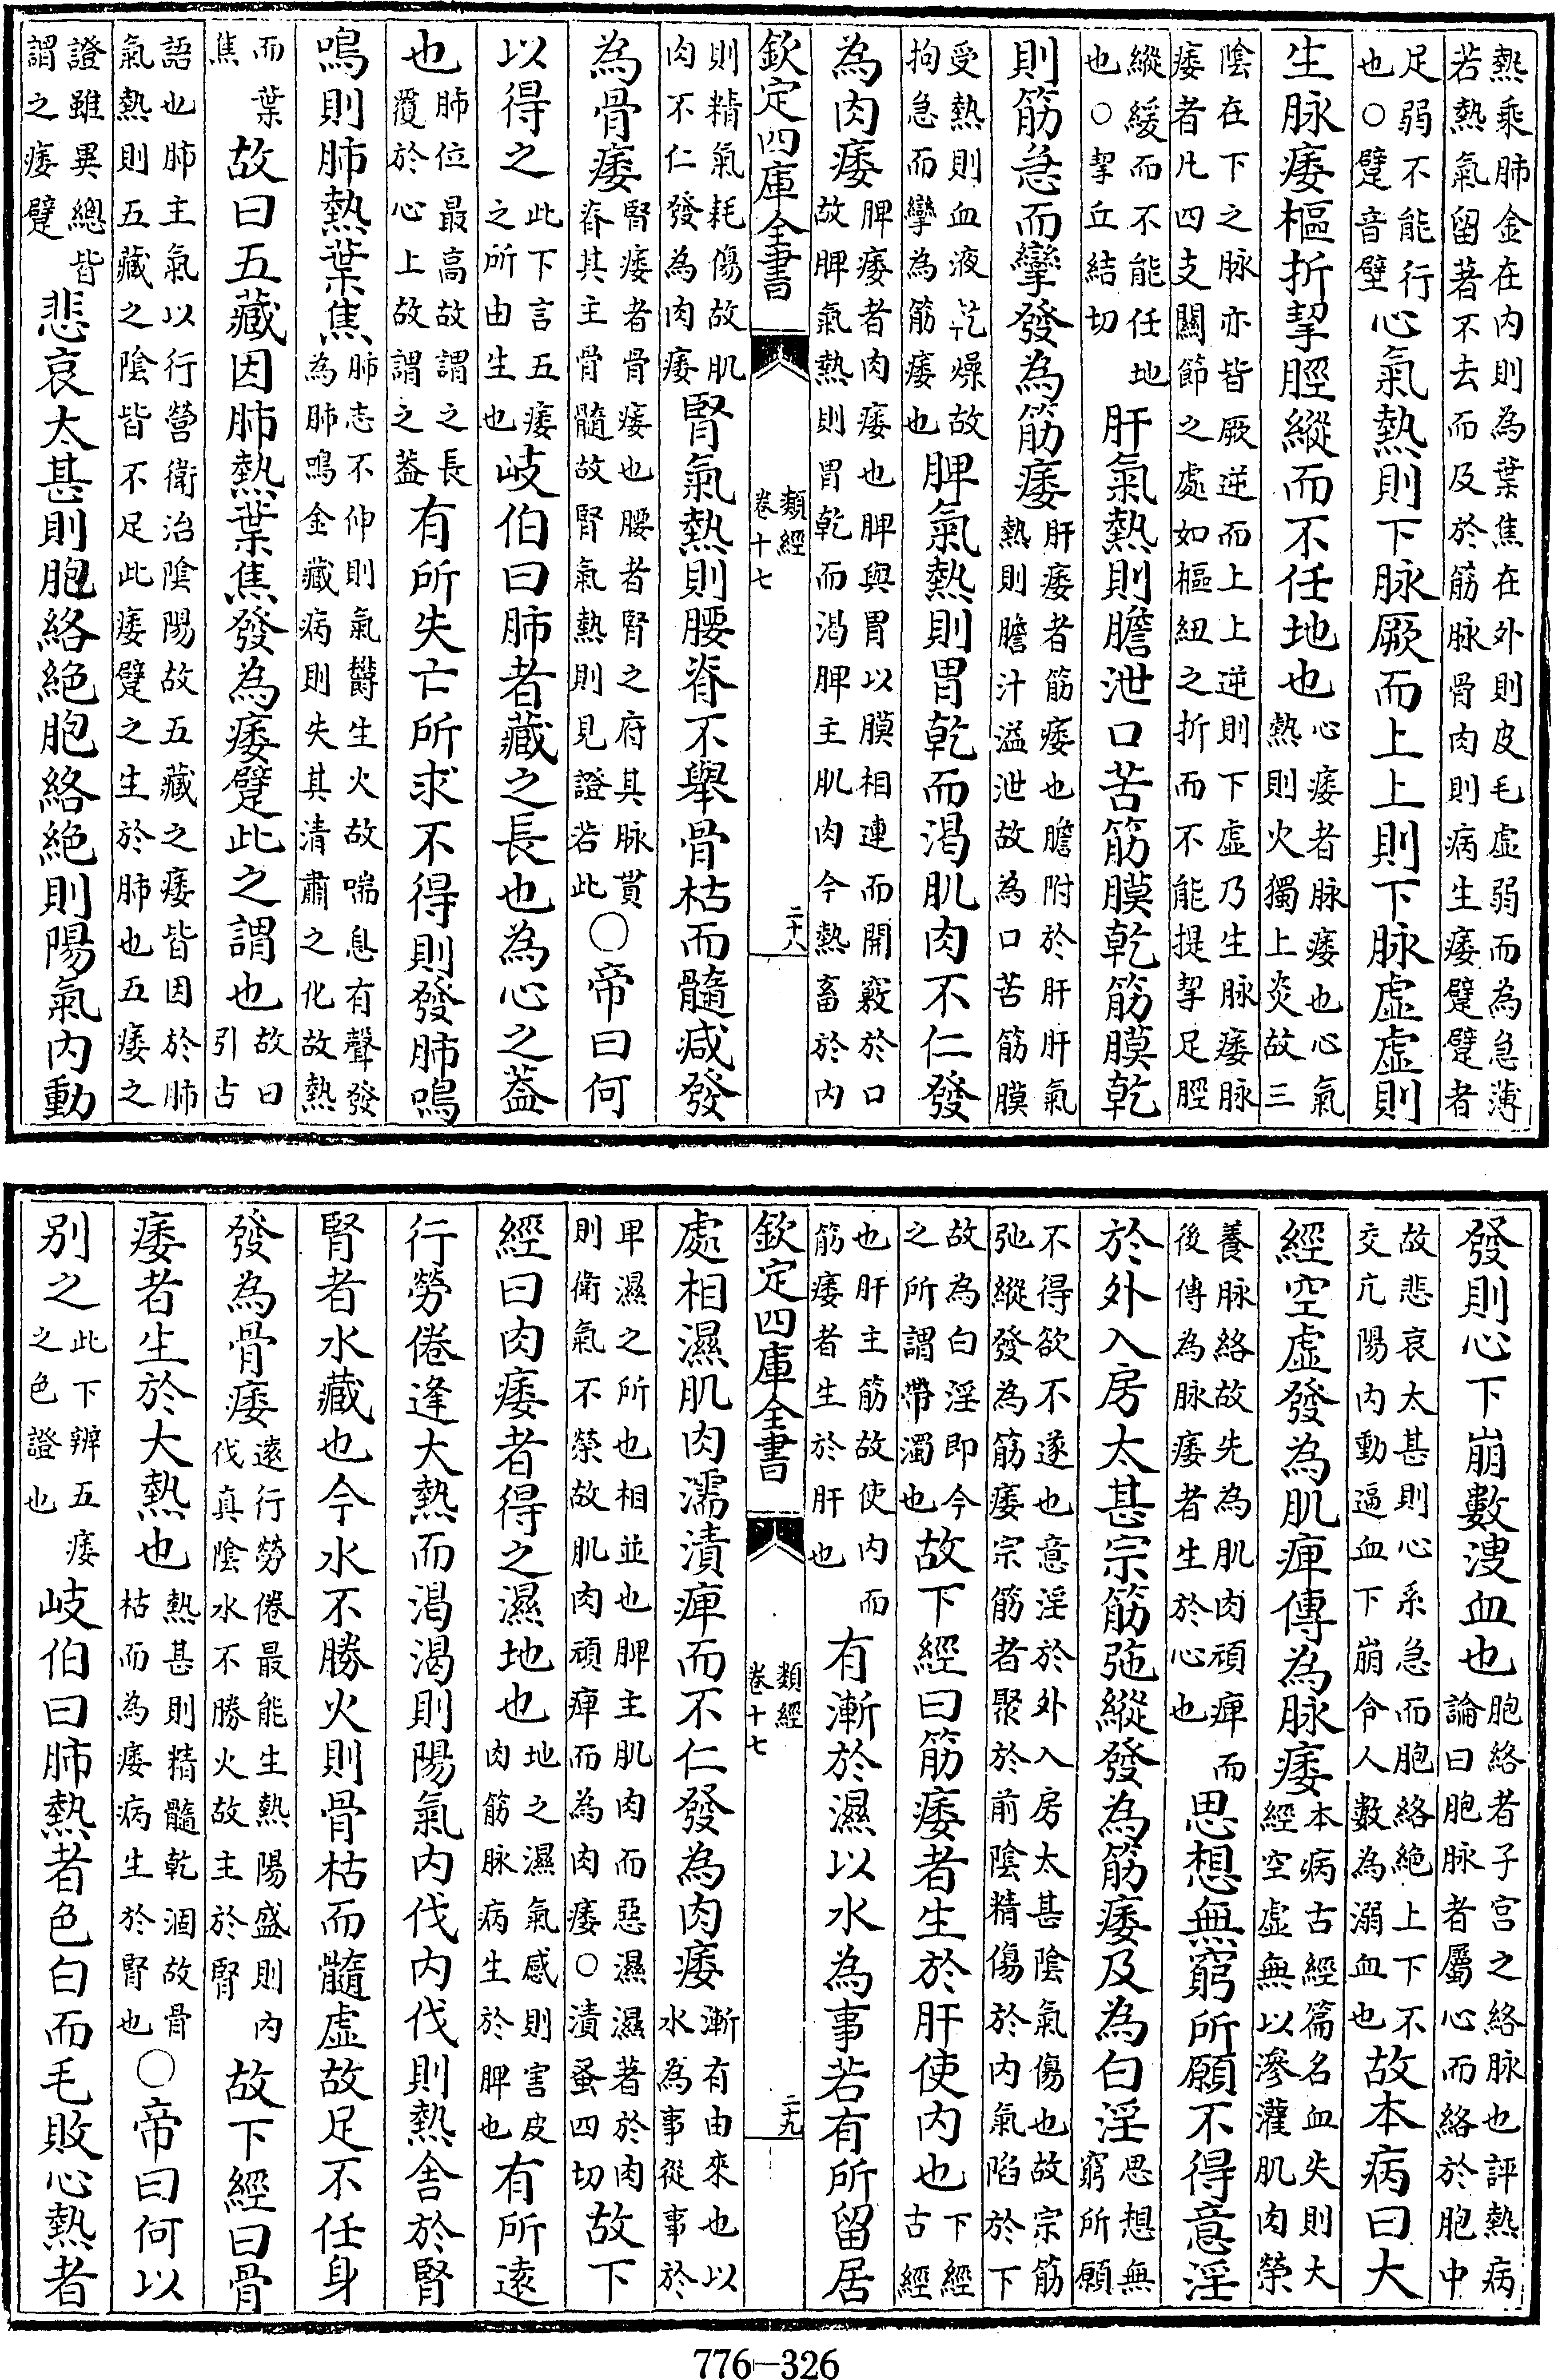 熱乘肺金在内則為葉焦在外則皮毛虚弱而為急薄
若熱氣留著不去而及於筋脉骨肉則病生痿躄躄者
足弱不能行
也○躄音壁
心氣熱則下脉厥而上上則下脉虚虚則
生脉痿樞折挈脛縱而不任地也
心痿者脉痿也心氣
熱則火獨上炎故三
陰在下之脉亦皆厥逆而上上逆則下虚乃生脉痿脉
痿者凡四支關節之處如樞紐之折而不能提挈足脛
縱緩而不能任地
也○挈丘結切
肝氣熱則膽泄口苦筋膜乾筋膜乾
則筋急而攣發為筋痿
肝痿者筋痿也膽附於肝肝氣
熱則膽汁溢泄故為口苦筋膜
受熱則血液乾燥故
拘急而攣為筋痿也
脾氣熱則胃乾而渴肌肉不仁發
為肉痿
脾痿者肉痿也脾與胃以膜相連而開竅於口
故脾氣熱則胃乾而渴脾主肌肉今熱畜於内
欽定四庫全書
類經
卷十七
二十八
則精氣耗傷故肌
肉不仁發為肉痿
腎氣熱則腰脊不舉骨枯而髓減發
為骨痿
腎痿者骨痿也腰者腎之府其脉貫
脊其主骨髓故腎氣熱則見證若此
○帝曰何
以得之
此下言五痿
之所由生也
岐伯曰肺者藏之長也為心之蓋
也
肺位最高故謂之長
覆於心上故謂之蓋
有所失亡所求不得則發肺鳴
鳴則肺熱葉焦
肺志不伸則氣欝生火故喘息有聲發
為肺鳴金藏病則失其清肅之化故熱
而葉
焦
故曰五藏因肺熱葉焦發為痿躄此之謂也
故曰
引古
語也肺主氣以行營衛治陰陽故五藏之痿皆因於肺
氣熱則五藏之陰皆不足此痿躄之生於肺也五痿之
證雖異總皆
謂之痿躄
悲哀太甚則胞絡絶胞絡絶則陽氣内動
發則心下崩數溲血也
胞絡者子宫之絡脉也評熱病
論曰胞脉者屬心而絡於胞中
故悲哀太甚則心系急而胞絡絶上下不
交亢陽内動逼血下崩令人數為溺血也
故本病曰大
經空虚發為肌痺傳為脉痿
本病古經篇名血失則大
經空虚無以滲灌肌肉榮
養脉絡故先為肌肉頑痺而
後傳為脉痿者生於心也
思想無窮所願不得意淫
於外入房太甚宗筋弛縱發為筋痿及為白淫
思想無
窮所願
不得欲不遂也意淫於外入房太甚陰氣傷也故宗筋
弛縱發為筋痿宗筋者聚於前陰精傷於内氣陷於下
故為白淫即今
之所謂帶濁也
故下經曰筋痿者生於肝使内也
下經
古經
也肝主筋故使内而
筋痿者生於肝也
有漸於濕以水為事若有所留居
欽定四庫全書
類經
卷十七
二十九
處相濕肌肉濡漬痺而不仁發為肉痿
漸有由來也以
水為事從事於
卑濕之所也相並也脾主肌肉而惡濕濕著於肉
則衛氣不榮故肌肉頑痺而為肉痿○漬蚤四切
故下
經曰肉痿者得之濕地也
地之濕氣感則害皮
肉筋脉病生於脾也
有所遠
行勞倦逢大熱而渴渴則陽氣内伐内伐則熱舍於腎
腎者水藏也今水不勝火則骨枯而髓虚故足不任身
發為骨痿
遠行勞倦最能生熱陽盛則内
伐真陰水不勝火故主於腎
故下經曰骨
痿者生於大熱也
熱甚則精髓乾涸故骨
枯而為痿病生於腎也
○帝曰何以
别之
此下辨五痿
之色證也
岐伯曰肺熱者色白而毛敗心熱者
776-326